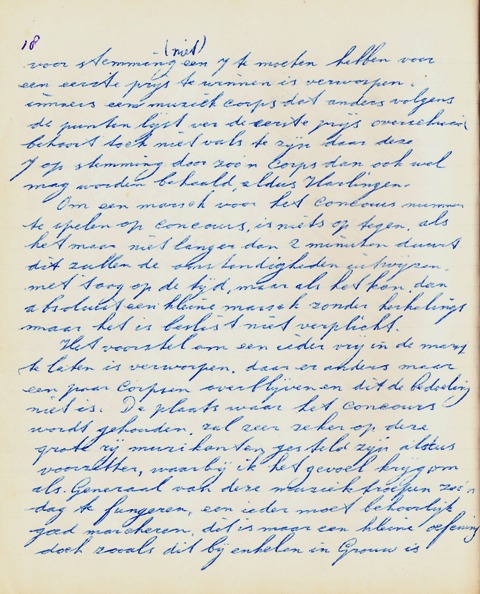 18
(niet)
voor stemming een 7 te moeten hebben voor
een eerste prijs te winnen is verworpen.
immers een muziek corps dat anders volgens
de punten lijst ver de eerste prijs overschreid
behoeft toch niet vals te zijn daar deze
7 op stemming door zoo'n Corps dan ook wel
mag worden behaald, aldus Harlingen.
Om een marsch voor het Concours nummer
te spelen op Concours, is niets op tegen, als
het maar niet langer dan 2 minuten duurt
dit zullen de omstandigheden uitwijzen.
met oog op de tijd, maar als het kan dan
absoluut een kleine marsch zonder herhalings
maar het is beslist niet verplicht.
Het voorstel om een ieder vrij in de marsch
te laten is verworpen, daar er anders maar
een paar Corpsen overblijven en dit de bedoeling
niet is. De plaats waar het Concours
wordt gehouden, zal zeer zeker op deze
grote rij muzikanten gesteld zijn aldus
voorzitter, waarbij ik het gevoel krijg om
als Generaal van deze muziektroepen zoo'n
dag te fungeren, een ieder moet behoorlijk
goed marcheren, dit is maar een kleine oefening
doch zooals dit bij enkelen in Grouw is